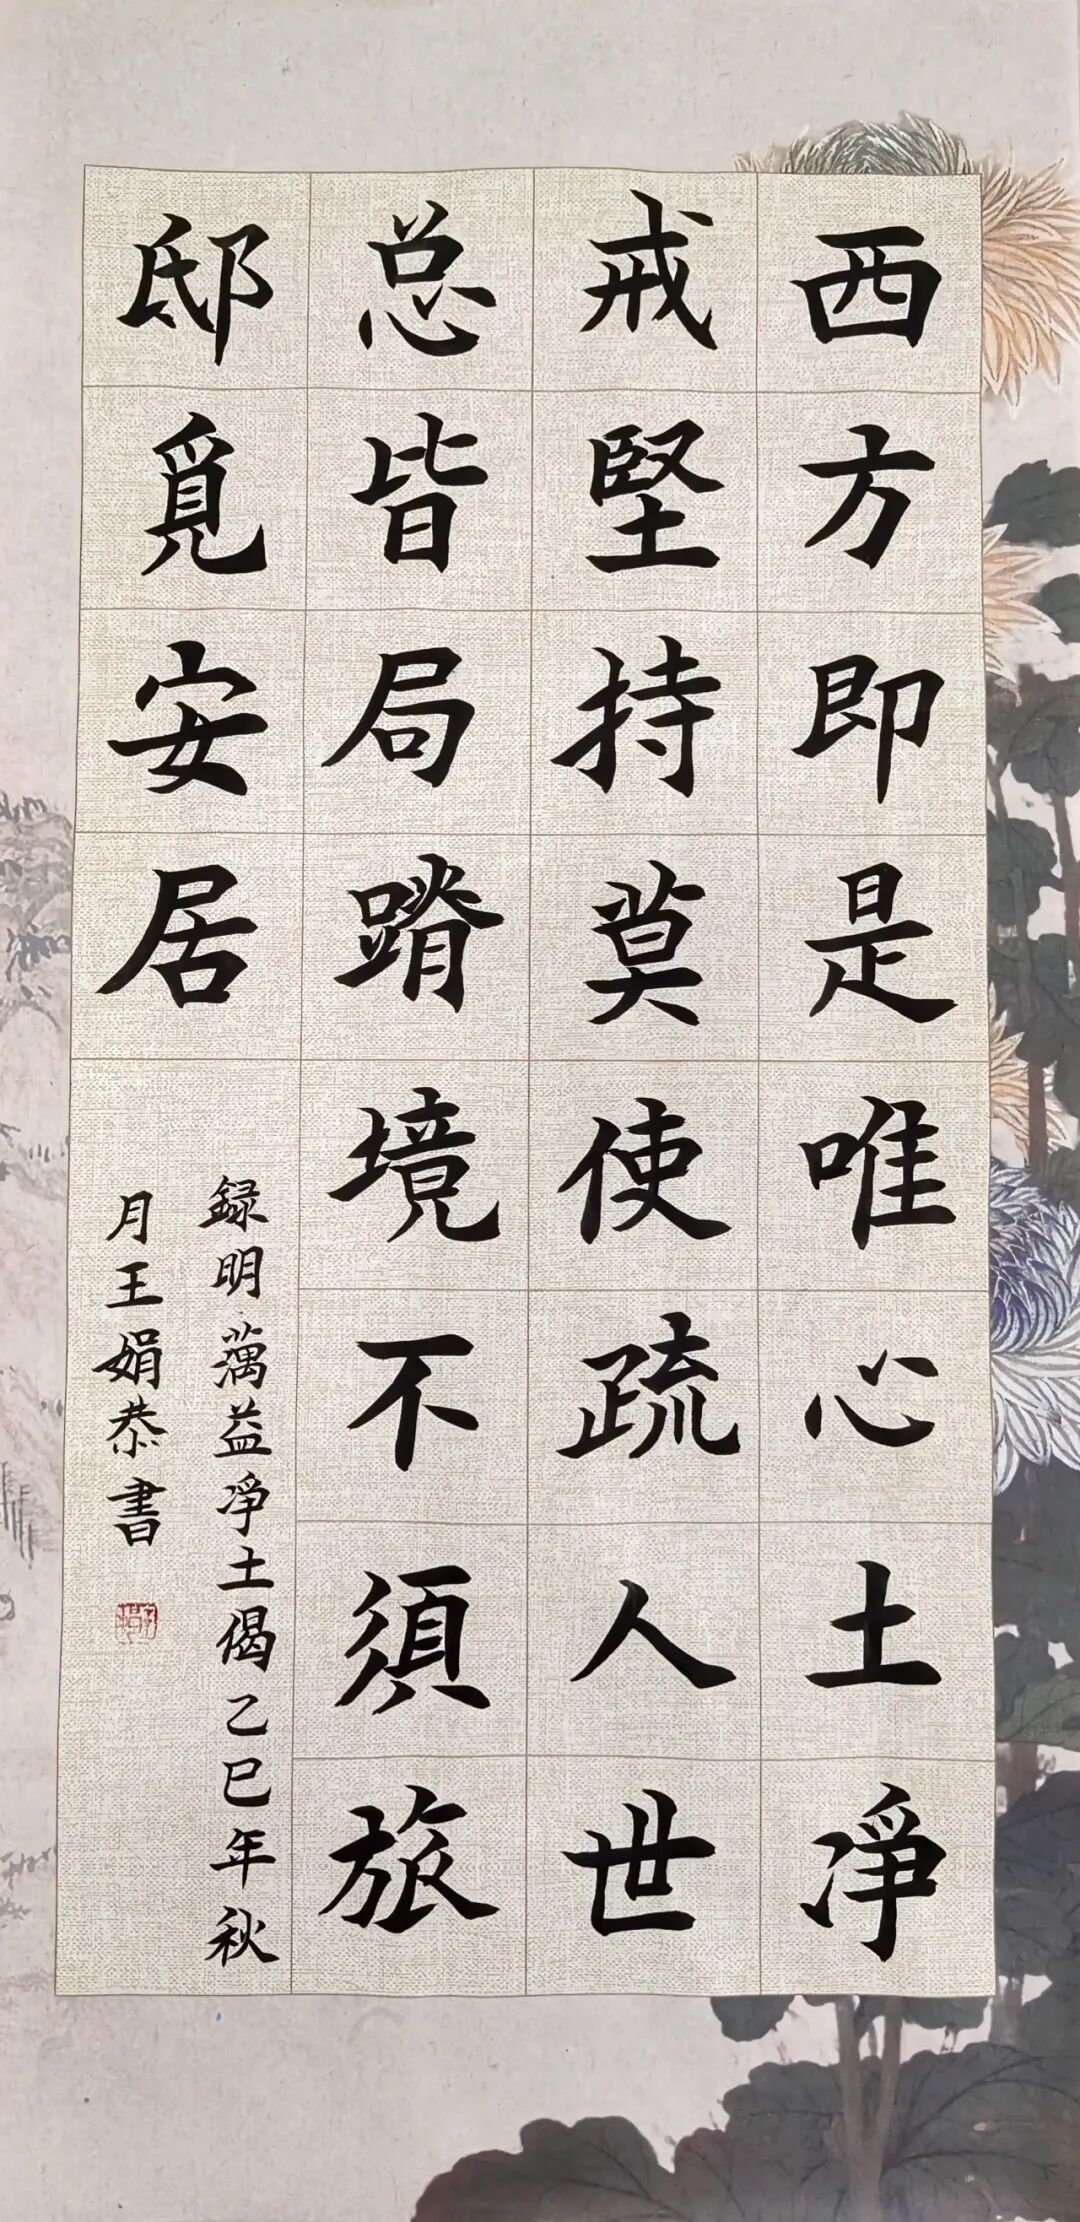 西方即是唯心土凈
戒堅持莫使疏人世
总皆局蹐境不須旅
邸覓安居
録明蕅益凈土偈乙巳年秋
月王娟恭書